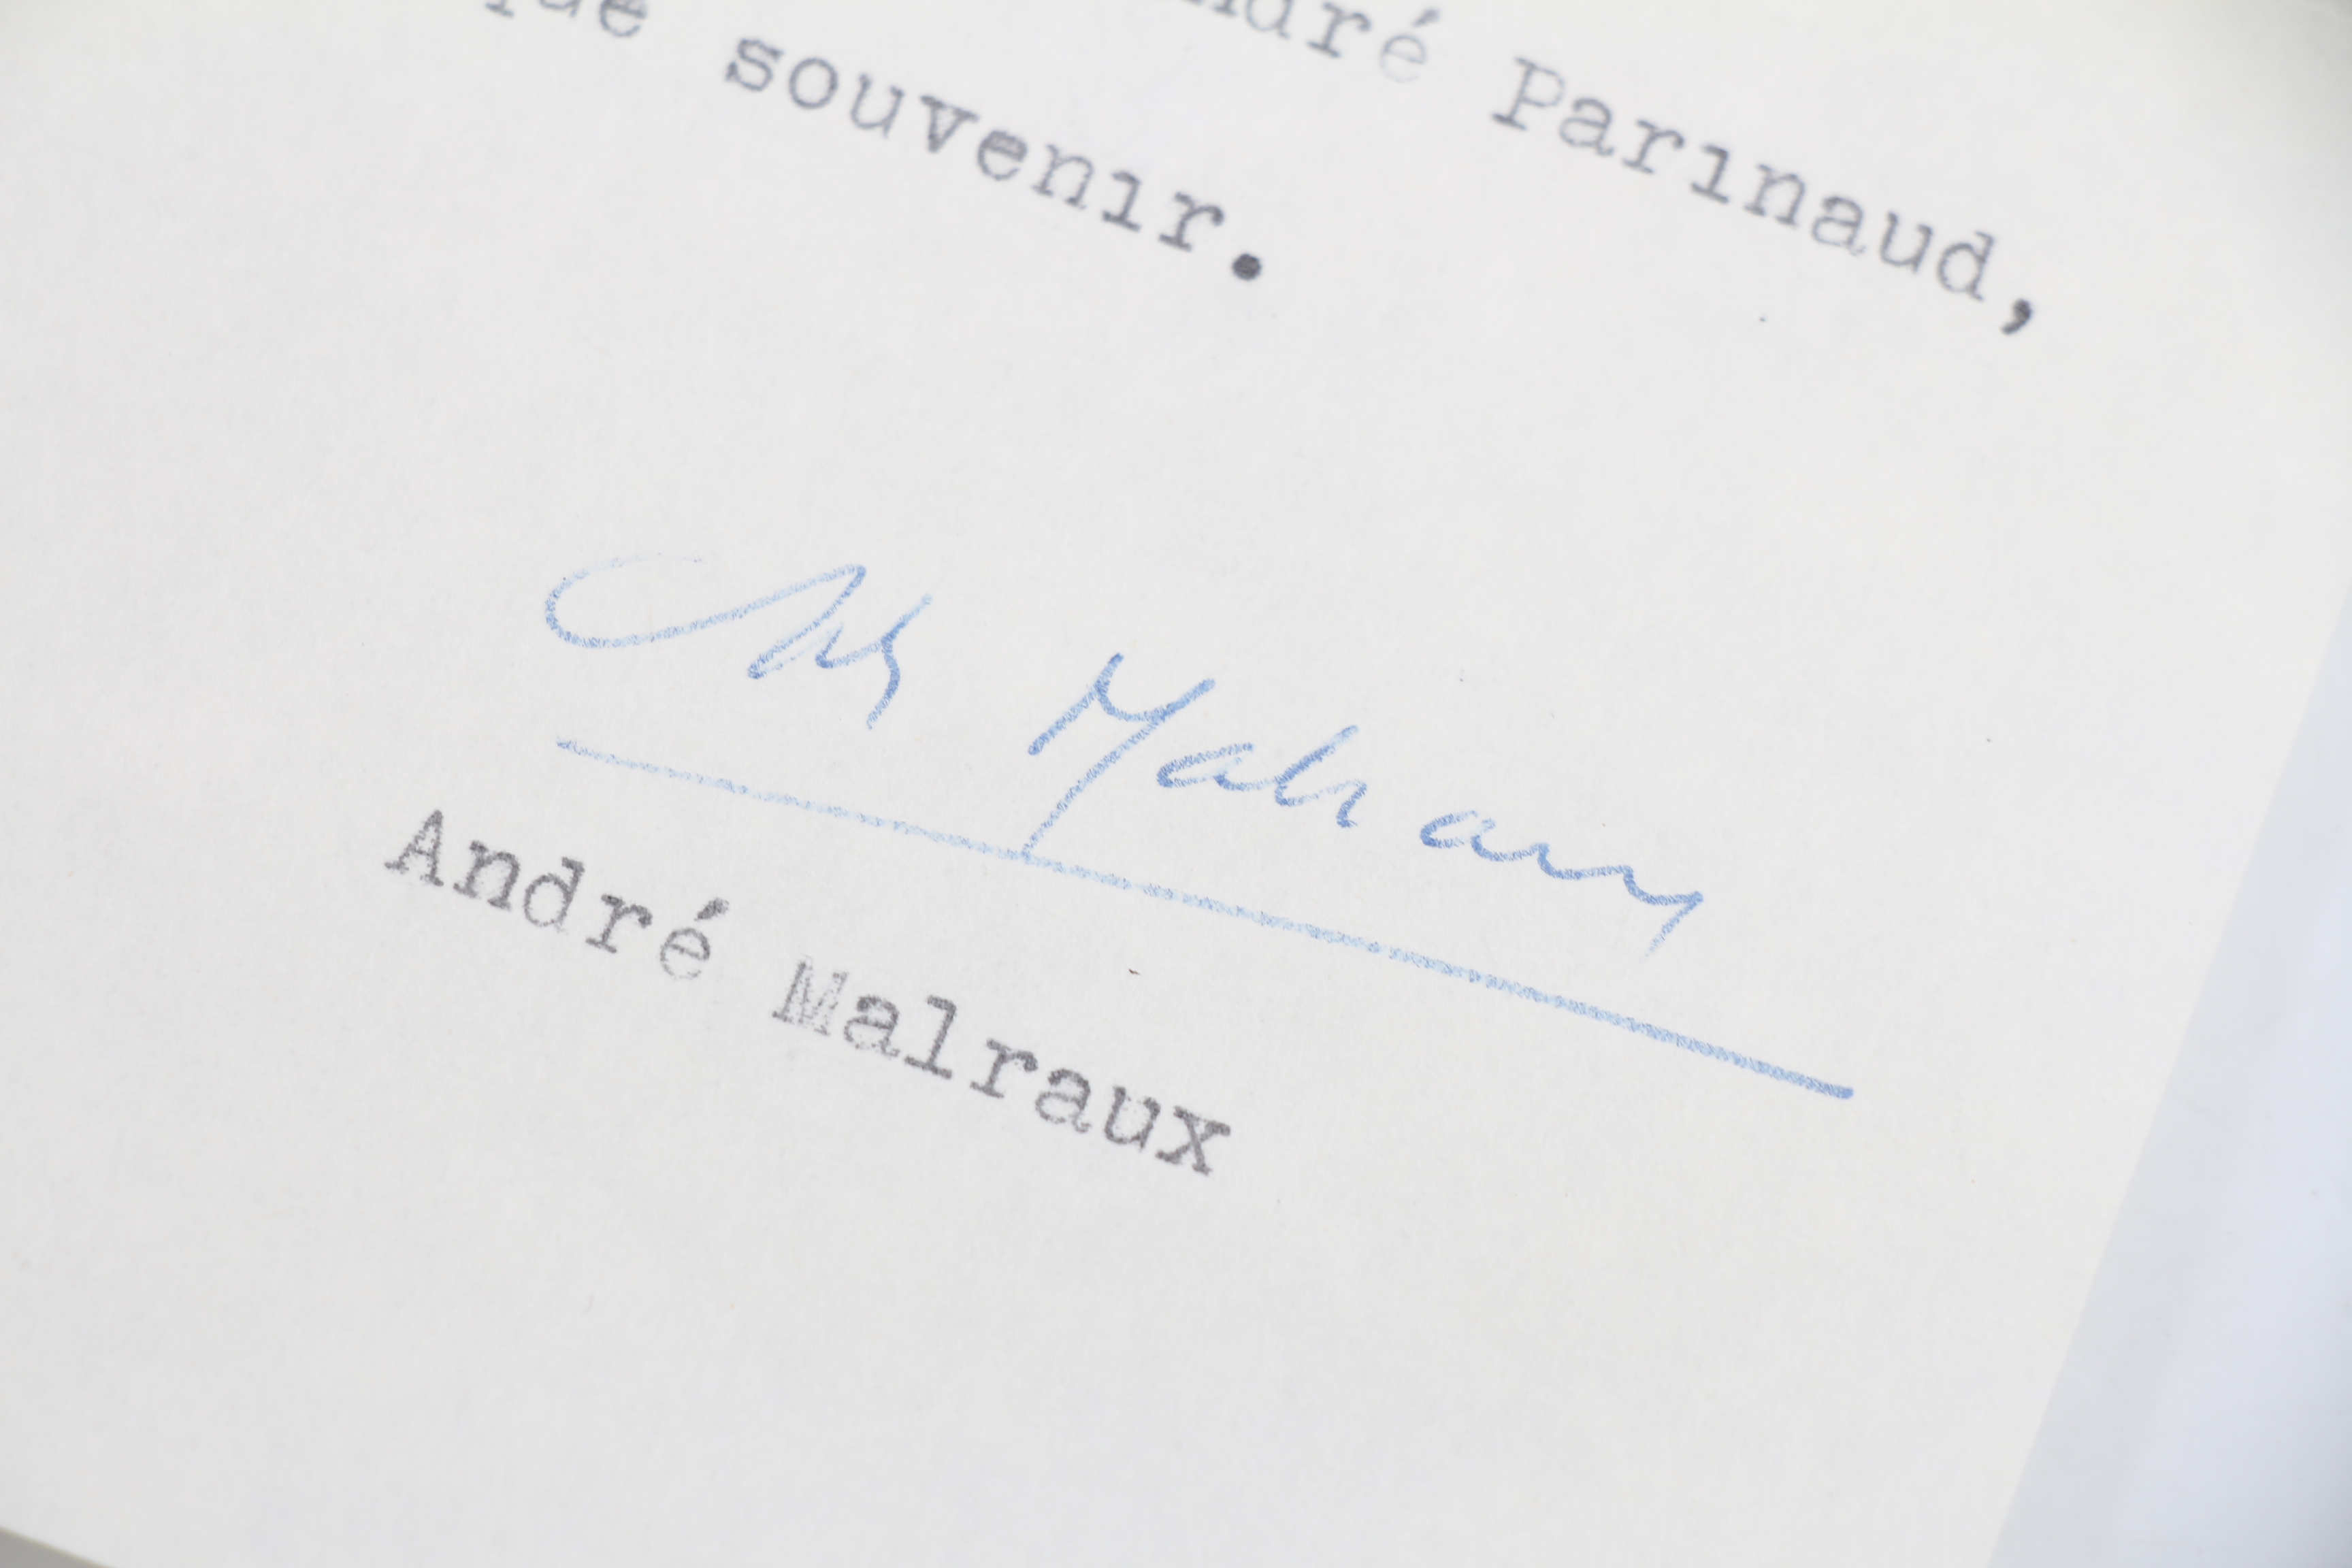 ndré Parinaud,
que souvenir.
André Malraux
André Malraux